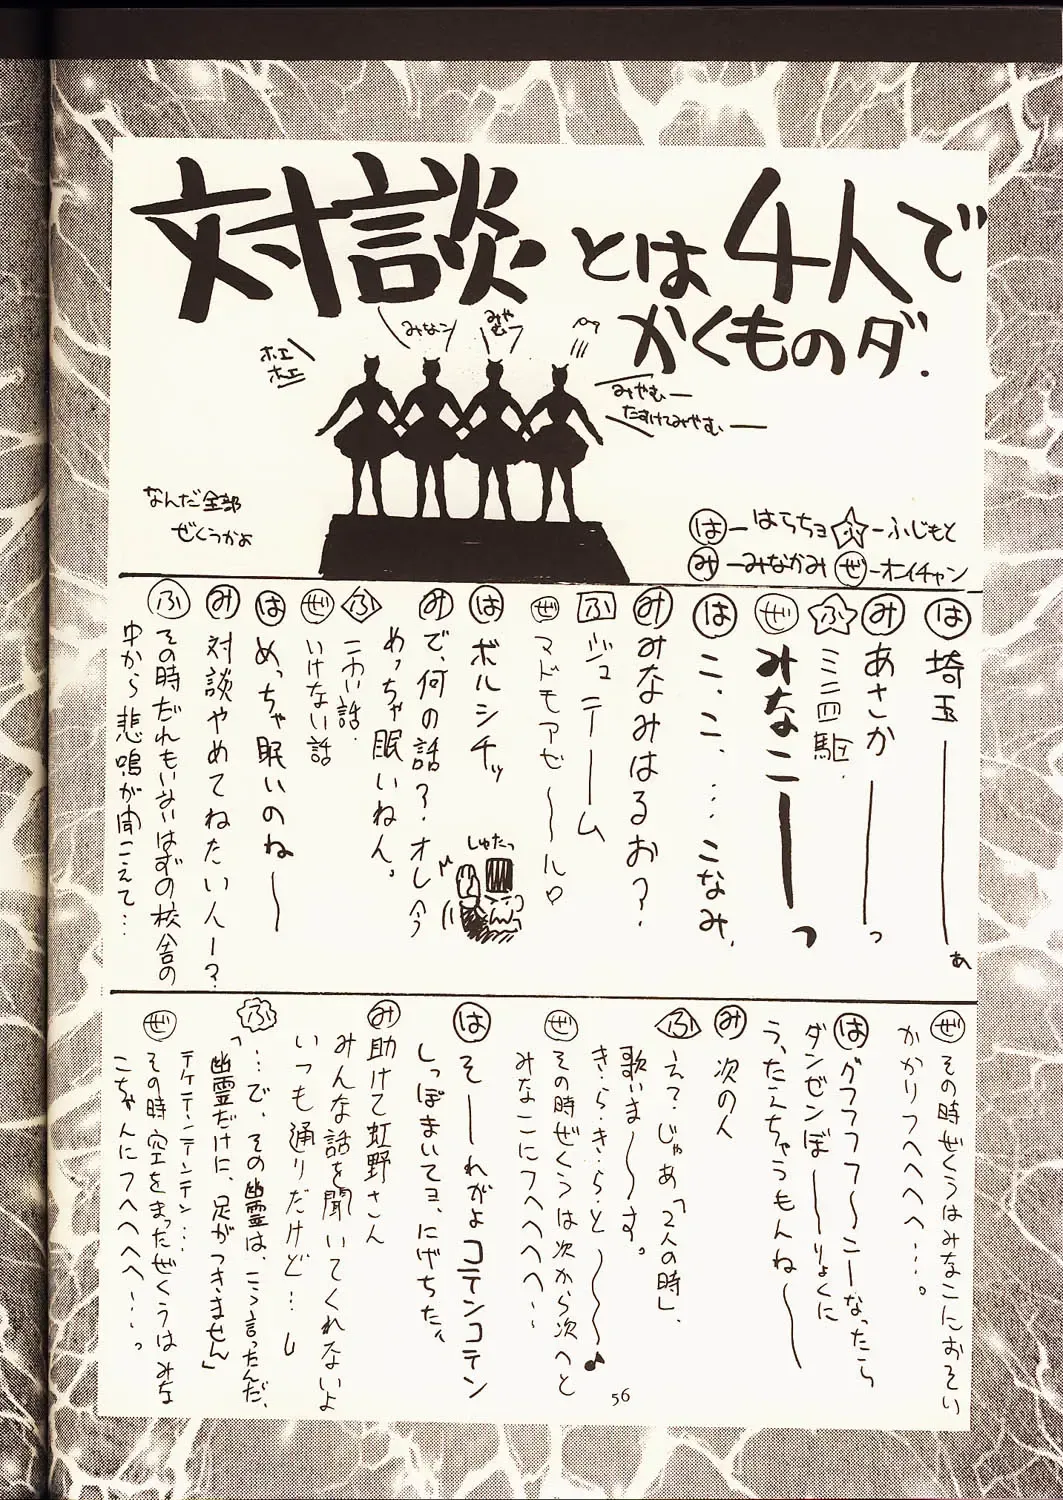 対談とは4人で
かくものダ.
ホエ
ホエ
みなコ
みや
むっ
みやむー
たすけてみやむー
なんだ全部
ぜくうかよ
はーはらちョ ふーふじもと
みーみなかみ ぜーオイチャン
は 埼玉――ぁ
み あさか――っ
ふ ミニ四駆.
ぜ みなこーーっ
は こ、こ、…こなみ、
み みなみはるお?
ふ ジュテーーム
ぜ マドモアゼ〜〜ル♡
は ボルシチッ
み で、何の話? オレ今
めっちゃ眠いねん。
ふ こわい話.
ぜ いけない話
は めっちゃ眠いのね〜
み 対談やめてねたい人ー?
ふ その時だれもいないはずの校舎の
中から悲鳴が聞こえて…
しゅたっ
ぜ その時ぜくうはみなこにおそい
かかりフヘヘヘヘ…。
は グフフフフ〜こーなったら
ダンゼンぼーーりょくに
う、たえちゃうもんね〜
み 次の人
ふ えっ?じゃあ「2人の時」.
歌いま〜〜す。
き・ら・き・ら・と〜〜〜♪
ぜ その時ぜくうは次から次へと
みなこにフヘヘヘヘ…
は そーーれがよコテンコテン
しっぽまいてヨ、にげちた。
み 助けて虹野さん
みんな話を聞いてくれないよ
いつも通りだけど…し
ふ 「…で、その幽霊は、こう言ったんだ、
幽霊だけに、足がつきません」
テケテンテンテンテン…
ぜ その時、空をまったぜくうはみな
こちゃんにフヘヘヘヘ…っ
56